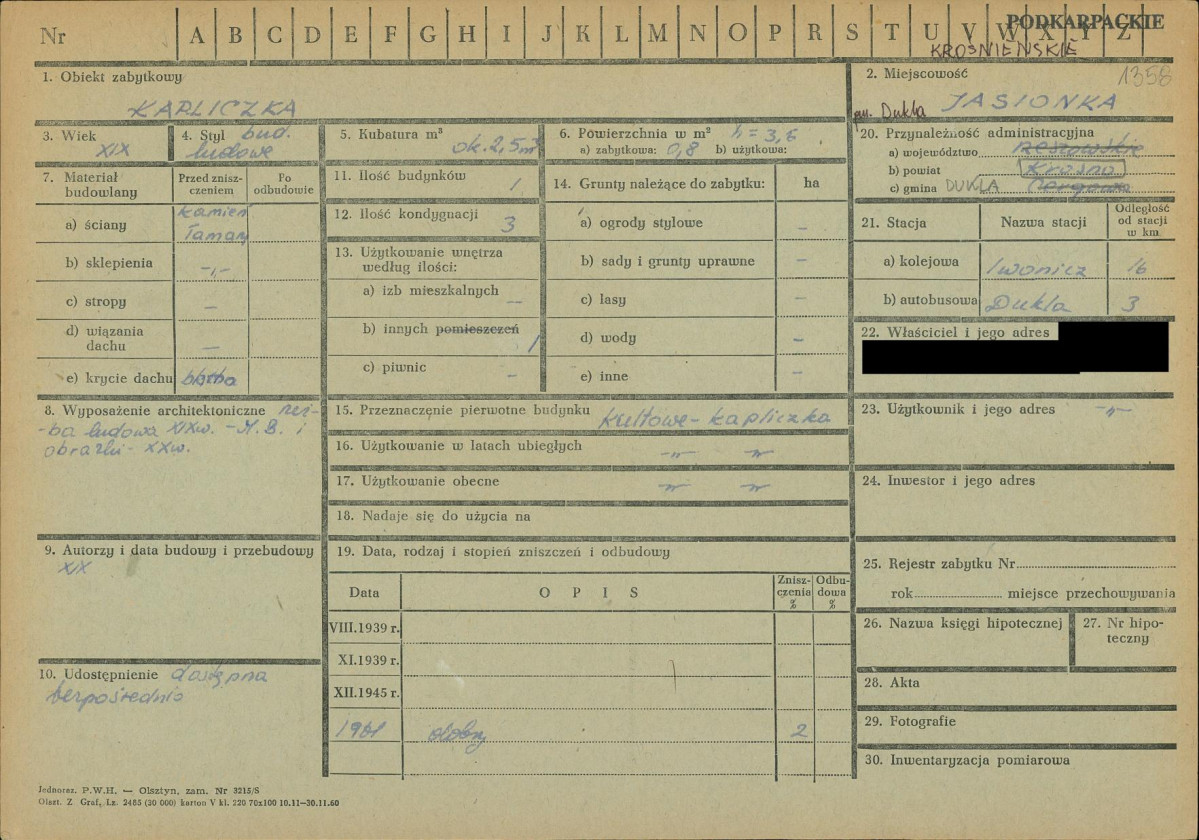 Nr A B C D E F G H I J K L M N O P R S T U V W X Y Z
PODKARPACKIE
KROŚNIEŃSKIE
1. Obiekt zabytkowy
KAPLICZKA
2. Miejscowość 1358
JASIONKA
Dukla
3. Wiek
XIX
4. Styl bud.
ludowe
5. Kubatura m³
ok. 2,5 m³
6. Powierzchnia w m² h = 3,6
a) zabytkowa: 0,8 b) użytkowa:
7. Materiał budowlany
Przed znisz-
czeniem
Po
odbudowie
a) ściany kamień
łamany
b) sklepienia -„-
c) stropy —
d) wiązania
dachu —
e) krycie dachu blacha
8. Wyposażenie architektoniczne rzeź-
-ba ludowa XIXw. - M.B. i
obrazki - XXw.
9. Autorzy i data budowy i przebudowy
XIX
10. Udostępnienie dostępna
bezpośrednio
11. Ilość budynków 1
12. Ilość kondygnacji 3
13. Użytkowanie wnętrza
według ilości:
a) izb mieszkalnych —
b) innych pomieszczeń 1
c) piwnic -
14. Grunty należące do zabytku: ha
a) ogrody stylowe -
b) sady i grunty uprawne -
c) lasy -
d) wody -
e) inne -
15. Przeznaczenie pierwotne budynku kultowe - kapliczka
16. Użytkowanie w latach ubiegłych -„- -„-
17. Użytkowanie obecne -„- -„-
18. Nadaje się do użycia na
19. Data, rodzaj i stopień zniszczeń i odbudowy
Data O P I S Znisz-
czenia
% Odbu-
dowa
%
VIII.1939 r.
XI.1939 r.
XII.1945 r.
dobry 2
20. Przynależność administracyjna
a) województwo rzeszowskie
b) powiat Krosno
c) gmina DUKLA
21. Stacja Nazwa stacji Odległość
od stacji
w km
a) kolejowa Iwonicz 16
b) autobusowa Dukla 3
22. Właściciel i jego adres
23. Użytkownik i jego adres -„-
24. Inwestor i jego adres
25. Rejestr zabytku Nr
rok miejsce przechowywania
26. Nazwa księgi hipotecznej
27. Nr hipo-
teczny
28. Akta
29. Fotografie
30. Inwentaryzacja pomiarowa
Jednoraz. P.W.H. — Olsztyn, zam. Nr 3215/S
Olszt. Z Graf. Lz. 2485 (20 000) karton V kl. 220 70x100 10.11—30.11.60